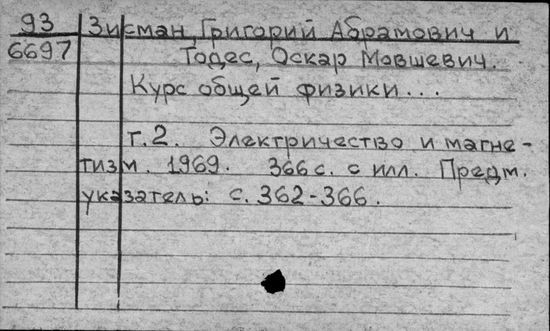 93 Зисман, Григорий Абрамович и
6697 Тодес, Оскар Мовшевич.
Курс общей физики...
т.2. Электричество и магне-
тизм. 1969. 366 с. с илл. Предм.
указатель: с. 362-366.